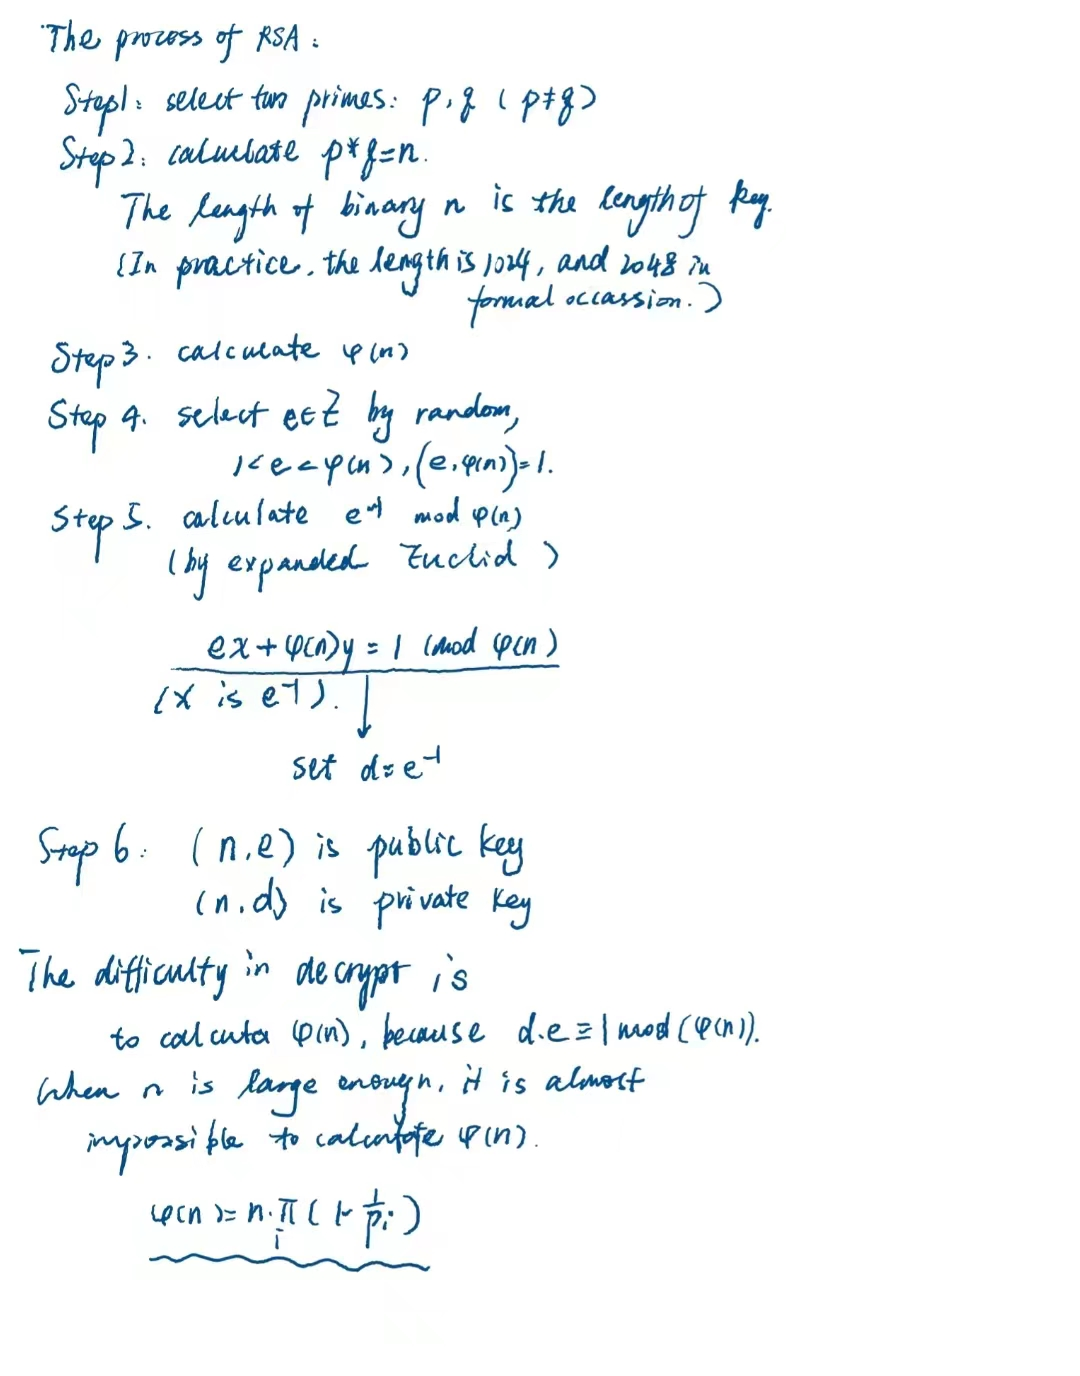 The process of RSA:
Step1: select two primes: p, q (p≠q)
Step 2: calculate p*q=n.
The length of binary n is the length of key.
(In practice, the length is 1024, and 2048 in
formal occassion.)
Step 3. calculate φ(n)
Step 4. select e∈Z by random,
1<e<φ(n), (e,φ(n))=1.
Step 5. calculate e⁻¹ mod φ(n)
(by expanded Euclid)
ex+φ(n)y = 1 (mod φ(n)
(x is e⁻¹).
set d=e⁻¹
Step 6: (n,e) is public key
(n,d) is private key
The difficulty in decrypt is
to φ(n), because d·e≡1 mod(φ(n)).
When n is large enough, it is almost
impossible to calculate φ(n).
φ(n)=n·∏ᵢ(1-1/pᵢ)